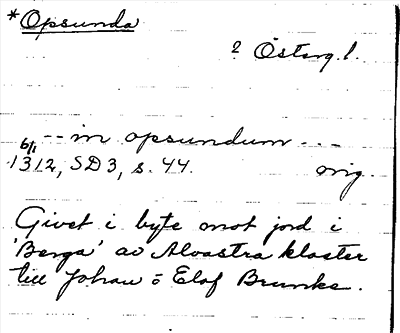 *Opsunda
? Österg.l.
-- in opsundum ---
6/1 1312, SD3, s. 44. orig.
Givet i byte mot jord i
'Berga' av Alvastra kloster
till Johan o Elof Brunke.